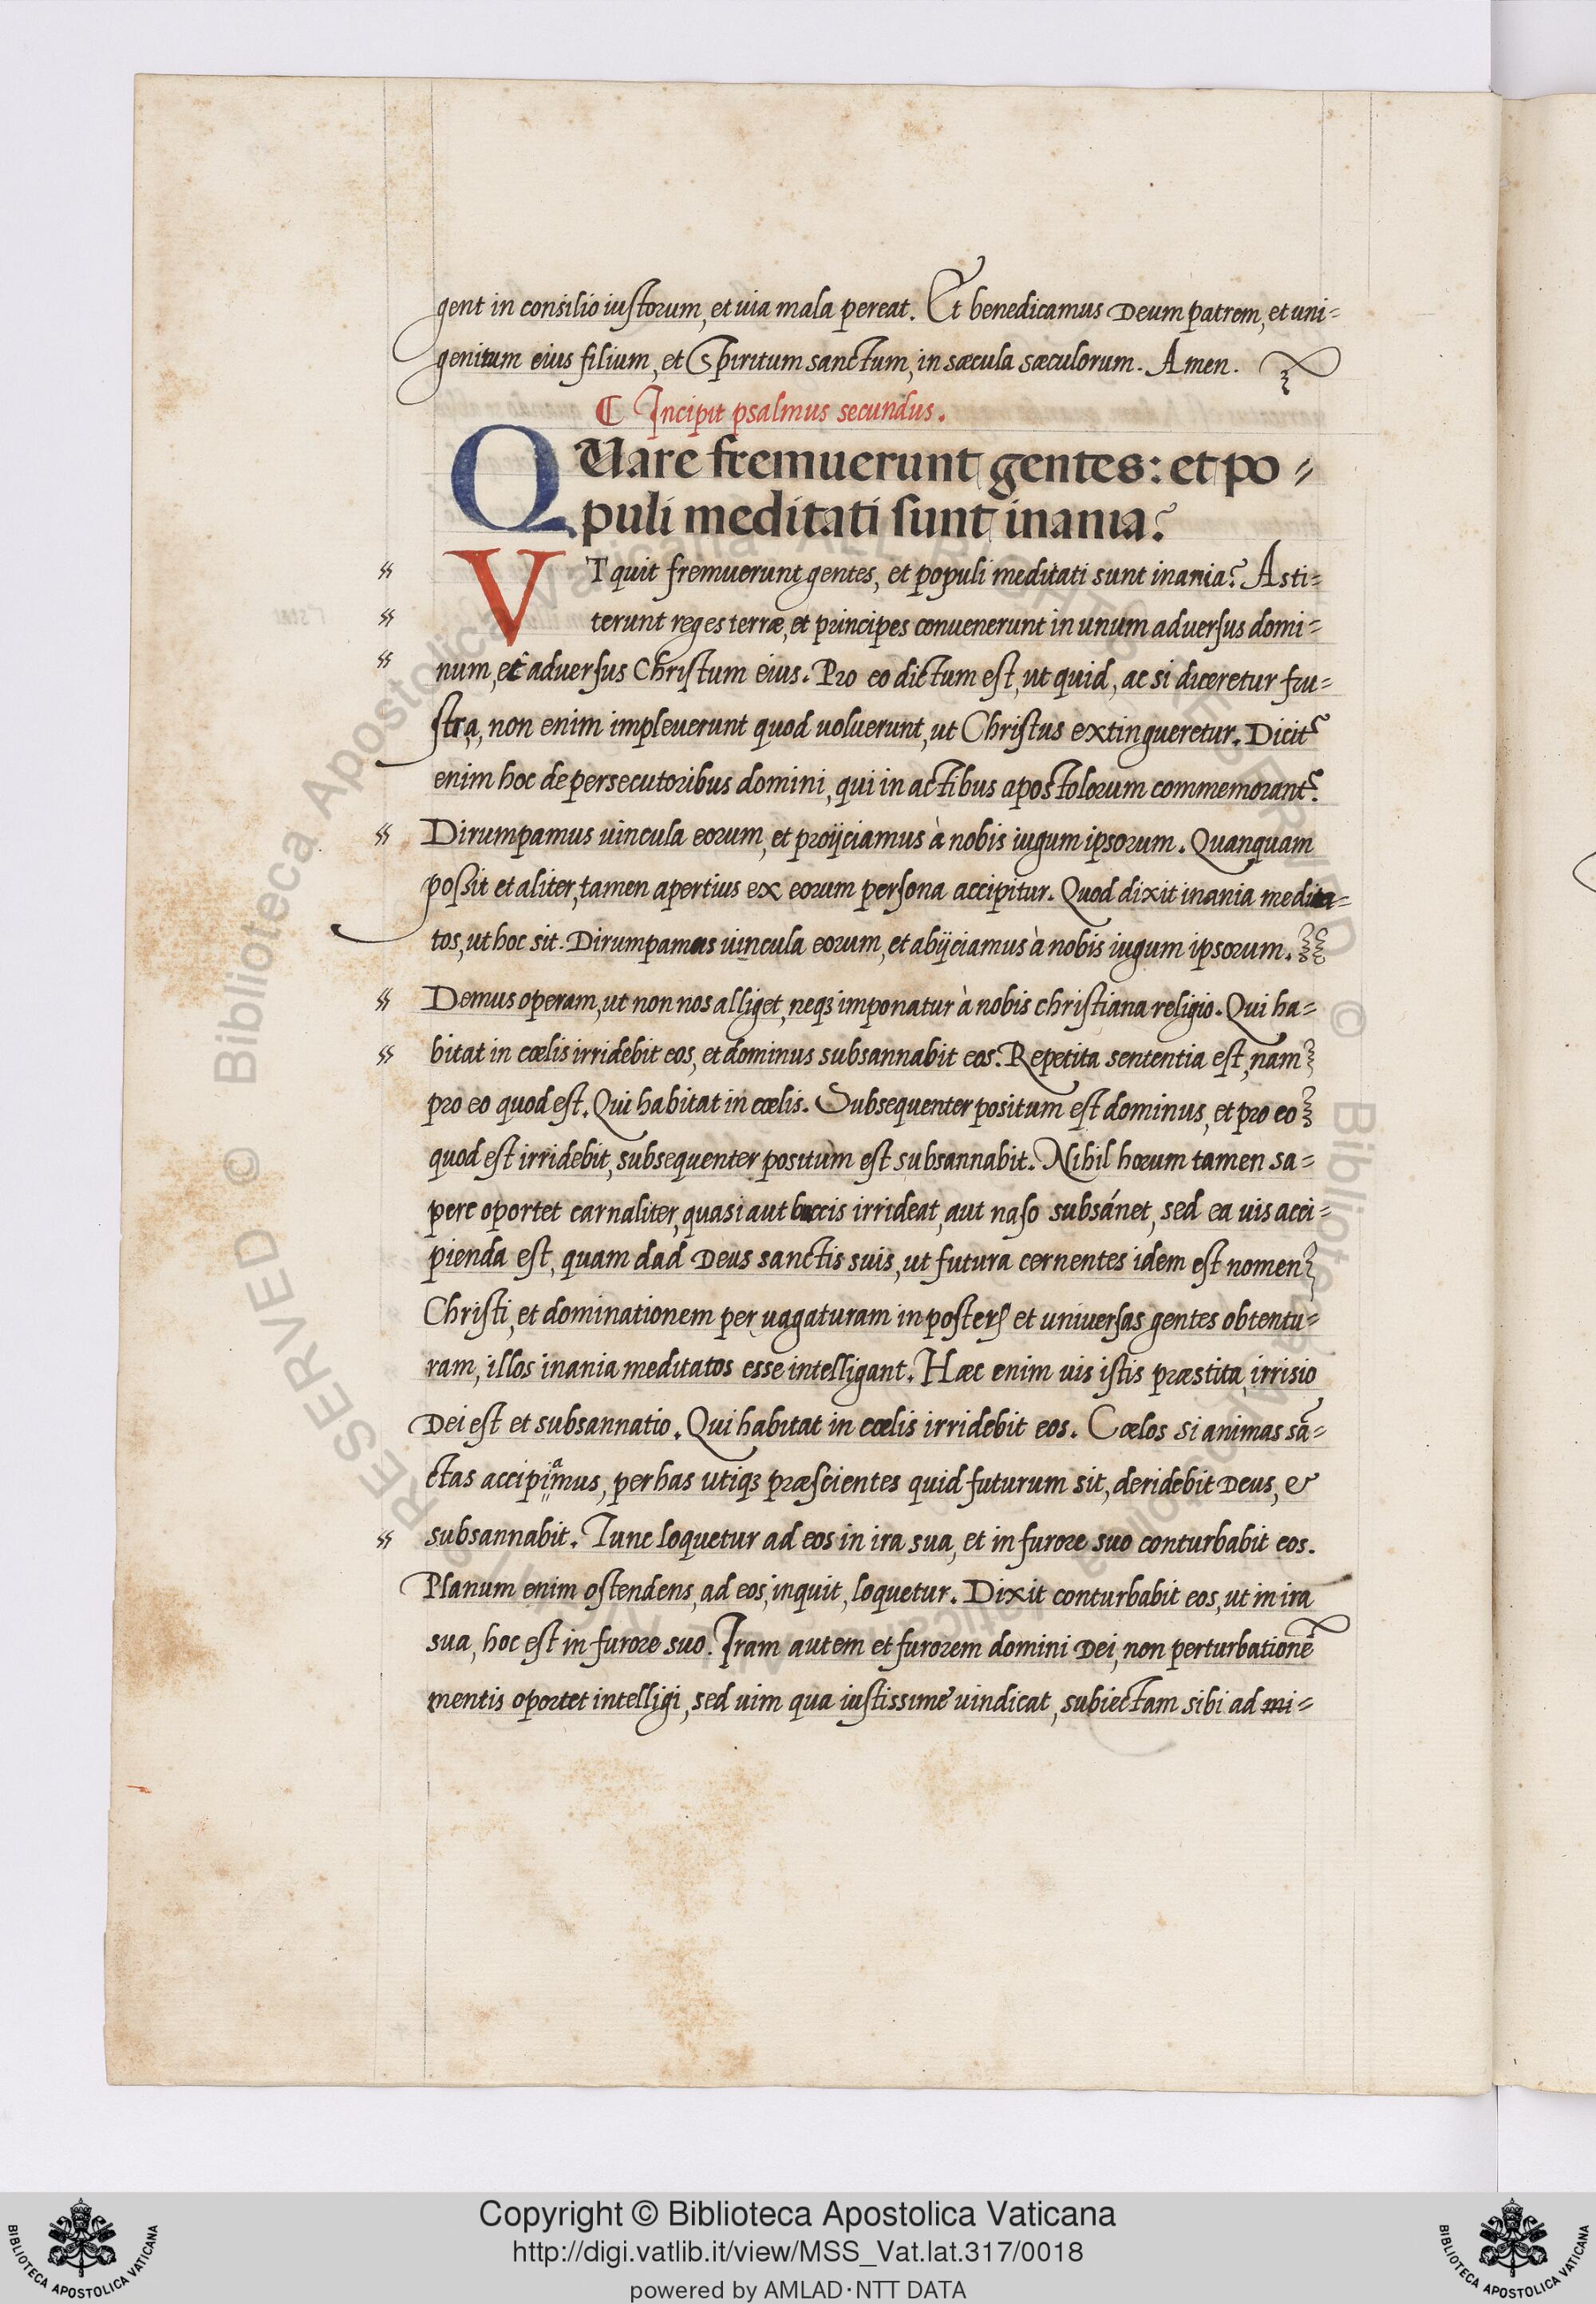 gent in consilio iustorum, et uia mala pereat. Et benedicamus Deum patrem, et uni=
genitum eius filium, et Spiritum sanctum, in sæcula sæculorum. Amen.
Incipit psalmus secundus.
QVare fremuerunt gentes: et po=
puli meditati sunt inania?
VT quit fremuerunt gentes, et populi meditati sunt inania? Asti=
terunt reges terræ, et principes convenerunt in unum adversus domi=
num, et adversus Christum eius. Pro eo dictum est, ut quid, ac si diceretur fru=
stra, non enim impleverunt quod voluerunt, ut Christus extingueretur. Dicit᷑
enim hoc de persecutoribus domini, qui in actibus apostolorum commemorant᷑.
Dirumpamus uincula eorum, et proijciamus à nobis iugum ipsorum. Quanquam
possit et aliter, tamen apertius ex eorum persona accipitur. Quod dixit inania medita=
tos, ut hoc sit. Dirumpamus uincula eorum, et abijciamus à nobis iugum ipsorum.
Demus operam, ut non nos alliget, neqꝫ imponatur à nobis christiana religio. Qui ha=
bitat in cœlis irridebit eos, et dominus subsannabit eos. Repetita sententia est, nam
pro eo quod est. Qui habitat in cœlis. Subsequenter positum est dominus, et pro eo
quod est irridebit, subsequenter positum est subsannabit. Nihil horum tamen sa=
pere oportet carnaliter, quasi aut buccis irrideat, aut naso subsánet, sed ea uis acci=
pienda est, quam dad Deus sanctis suis, ut futura cernentes idem est nomen
Christi, et dominationem per uagaturam in posterꝭ et universas gentes obtentu=
ram, illos inania meditatos esse intelligant. Hæc enim uis istis præstita, irrisio
Dei est et subsannatio. Qui habitat in cœlis irridebit eos. Cœlos si animas sã=
ctas accipiamus, per has utiqꝫ præscientes quid futurum sit, deridebit Deus, &
subsannabit. Tunc loquetur ad eos in ira sua, et in furore suo conturbabit eos.
Planum enim ostendens, ad eos, inquit, loquetur. Dixit conturbabit eos, ut in ira
sua, hoc est in furore suo. Iram autem et furorem domini Dei, non perturbationẽ
mentis oportet intelligi, sed uim qua iustissime uindicat, subiectam sibi ad mi=
Copyright © Biblioteca Apostolica Vaticana
http://digi.vatlib.it/view/MSS_Vat.lat.317/0018
powered by AMLAD·NTT DATA
BIBLIOTECA APOSTOLICA VATICANA
BIBLIOTECA APOSTOLICA VATICANA